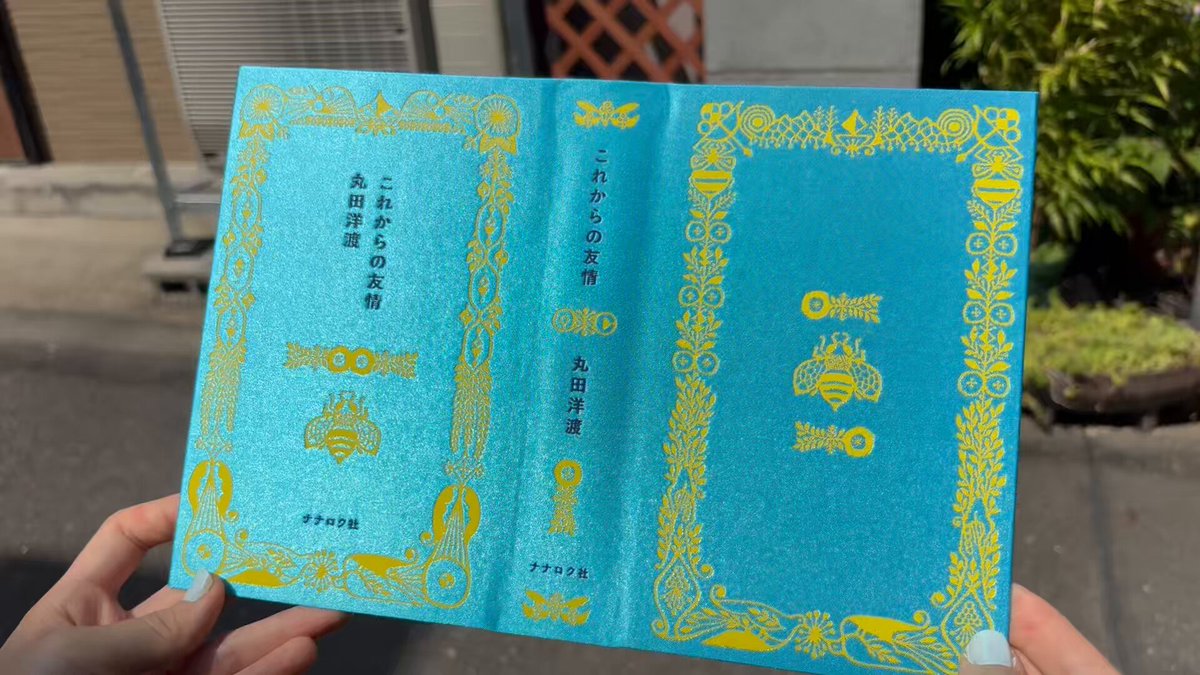 これからの友情
丸田洋渡
ナナロク社
これからの友情
丸田洋渡
ナナロク社